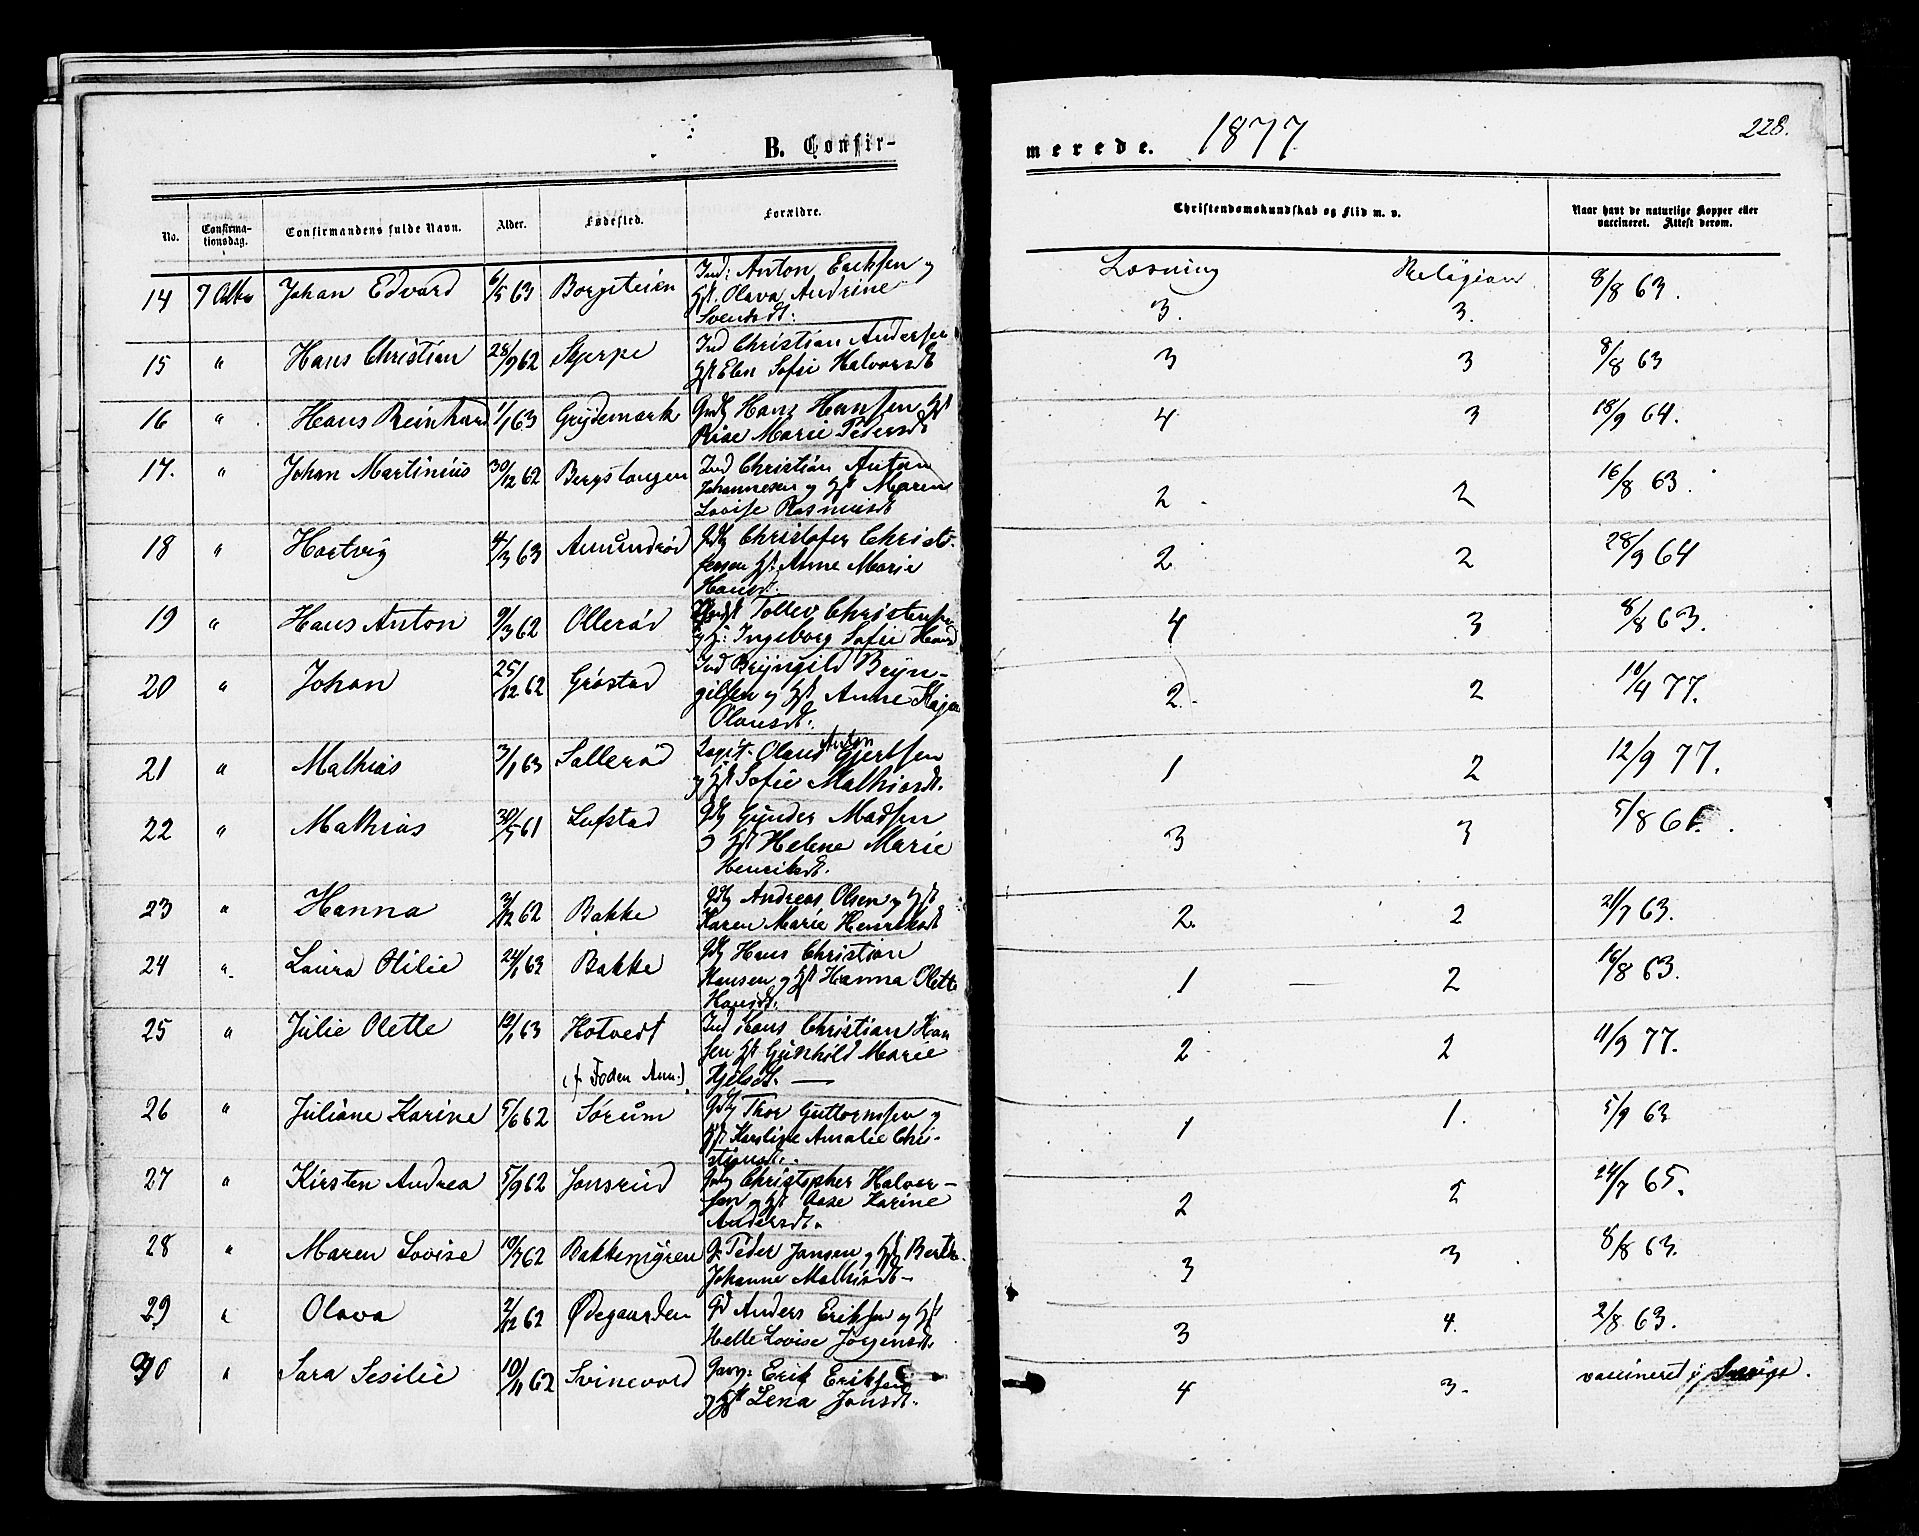 B. Confir-
merede. 1877
228.
No.
Confirma-
tionsdag.
Confirmandens fulde Navn.
Alder.
Fødested.
Forældre.
Christendomskundskab og Flid m. v.
Naar havt de naturlige Kopper eller
vaccineret. Attest derom.
Læsning Religion
14 7 Octbr Johan Edvard 6/5 63 Borgsteien Ind: Anton Eriksen og
Hst. Olava Andrine
Svendsdt: 3. 3. 8/8 63.
15 " Hans Christian 28/9 62 Skjerpe Ind Christian Andersen
Hst Elen Sofie Halvorsdt 3 3 8/8 63
16 " Hans Reinhard 1/1 63 Grydemark Gdb Hans Hansen Hst
Rise Marie Pedersdt 4 3 18/9 64.
17. " Johan Martinius 30/12 62 Bergslangen Ind Christian Anton
Johannesen og Hst Maren
Lovise Rasmusdt 2 2 16/8 63.
18 " Hartvig 4/3 63 Amundrød Gdb Christofer Christo-
fersen Hst. Anne Marie
Hansdt. 2 2 28/9 64
19 " Hans Anton 9/3 62 Ollerød Tollev Christensen
og H: Ingeborg Sofie Hansd 4 3 8/8 63.
20 " Johan 25/12 62 Gröstad Ind Bryngild Bryn-
gilsen og Hst Anne Kaja
Olausdt. 2. 2 10/4 77.
21 " Mathias 3/1 63 Sallerød Logst. Olaus Anton Gjertsen
og Hst Sofie Mathiasdt. 1 2 12/9 77.
22 " Mathias 30/5 61 Lofstad Gdb Gunder Madsen
o Hst Helene Marie
Henriksdt. 3 3 5/8 61.
23 " Hanna 3/12 62 Bakke Gdb Andreas Olsen og Hst
Karen Marie Henriksdt 2. 2 21/7 63.
24 " Laura Otilie 24/1 63 Bakke Gdb Hans Christian
Hansen og Hst Hanna Olette
Hansdt. 1 2 16/8 63.
25 " Julie Olette 12/1 63 Hotvedt
(f. Foden Ann.) Ind Hans Christian Han
sen Hst Gunhild Marie
Kjelsdt. 2 2 11/9 77.
26 " Juliane Karine 5/6 62 Sørum Gdb Thor Guttormsen og
Hst Karoline Amalie Chri-
stiansdt. 1 1. 5/9 63
27 " Kirsten Andrea 5/9 62 Jonsrud Gdb Christopher Halvor-
sen og Hst Aase Karine
Andersdt. 2 2 24/7 65.
28 " Maren Lovise 10/7 62 Bakkemyren G. Peder Jansen og Hst Berthe
Johanne Mathiasdt- 3 3 8/8 63.
29 " Olava 2/12 62 Ødegaarden Gd Anders Eriksen og Hst
Helle Lovise Jørgensdt. 3 4. 2/8 63.
30 " Sara Sesilie 10/11 62 Svinevold Garv: Erik Eriksen
og Hst Lena Jonsdt. 4 3. vaccineret i Sverige.